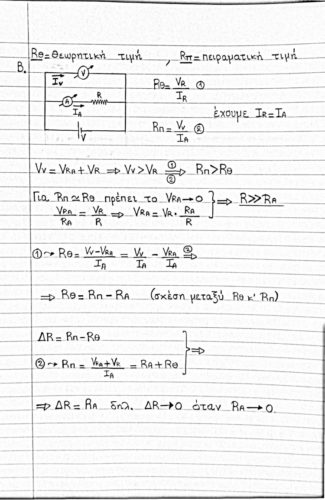 Rθ = θεωρητική τιμή , Rπ = πειραματική τιμή
B.
V
Iv
A R
IA
V
Rθ = VR/IR ①
έχουμε IR = IA
Rπ = Vv/IA ②
Vv = VRA + VR ⇒ Vv > VR ①⇒② Rπ > Rθ
Για Rπ ≃ Rθ πρέπει το VRA → 0 } ⇒ R >> RA
VRA/RA = VR/R ⇒ VRA = VR · RA/R
① → Rθ = (Vv - VRA)/IA = Vv/IA - VRA/IA ②⇒
⇒ Rθ = Rπ - RA (σχέση μεταξύ Rθ κ' Rπ)
ΔR = Rπ - Rθ } ⇒
② → Rπ = (VRA + VR)/IA = RA + Rθ
⇒ ΔR = RA δηλ. ΔR → 0 όταν RA → 0.